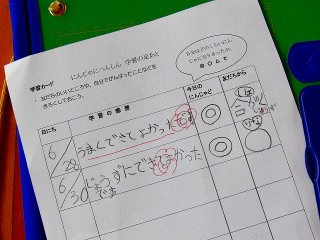 にんじゃにへんしん 学習の足あと
学習カード
・友だちのいいところや、自分でがんばったことなどを
きろくしておこう。
自分はどのくらいにん
じゃになりきったか。
◎ ○ △
日にち
学習の感想
今日の
にんじゃど
友だちから
6/28
うまくできてよかったです
◎
6/30
じょうずにできてよかった
です
◎
○